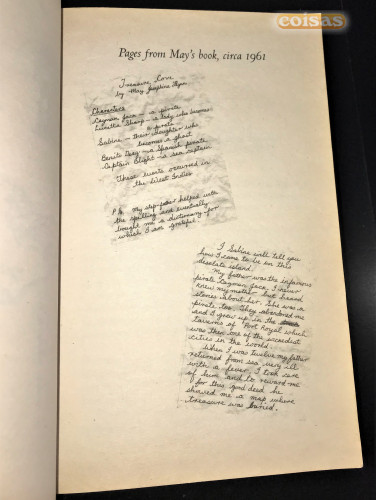 eoisas
Pages from May's book, circa 1961
Treasure Cove
by May Josephine Flynn
Characters
Cayman Jack — a pirate
Lucretia Sharp — a lady who becomes
a pirate
Sabine — their daughter who
becomes a ghost
Benito Davy — a Spanish pirate
Captain Blight — a sea captain
These events occurred in
the West Indies
P.S. My step-father helped with
the spelling and eventually
bought me a dictionary for
which I am grateful.
I Sabine will tell you
how I came to be on this
desolate island.
My father was the infamous
pirate Cayman Jack, I never
knew my mother but heard
stories about her. She was a
pirate too. They abandoned me
and I grew up in the
taverns of Port Royal which
was then one of the wickedest
cities in the world.
When I was twelve my father
returned from sea very ill
with a fever. I took care
of him and to reward me
for this good deed he
showed me a map where
treasure was buried.